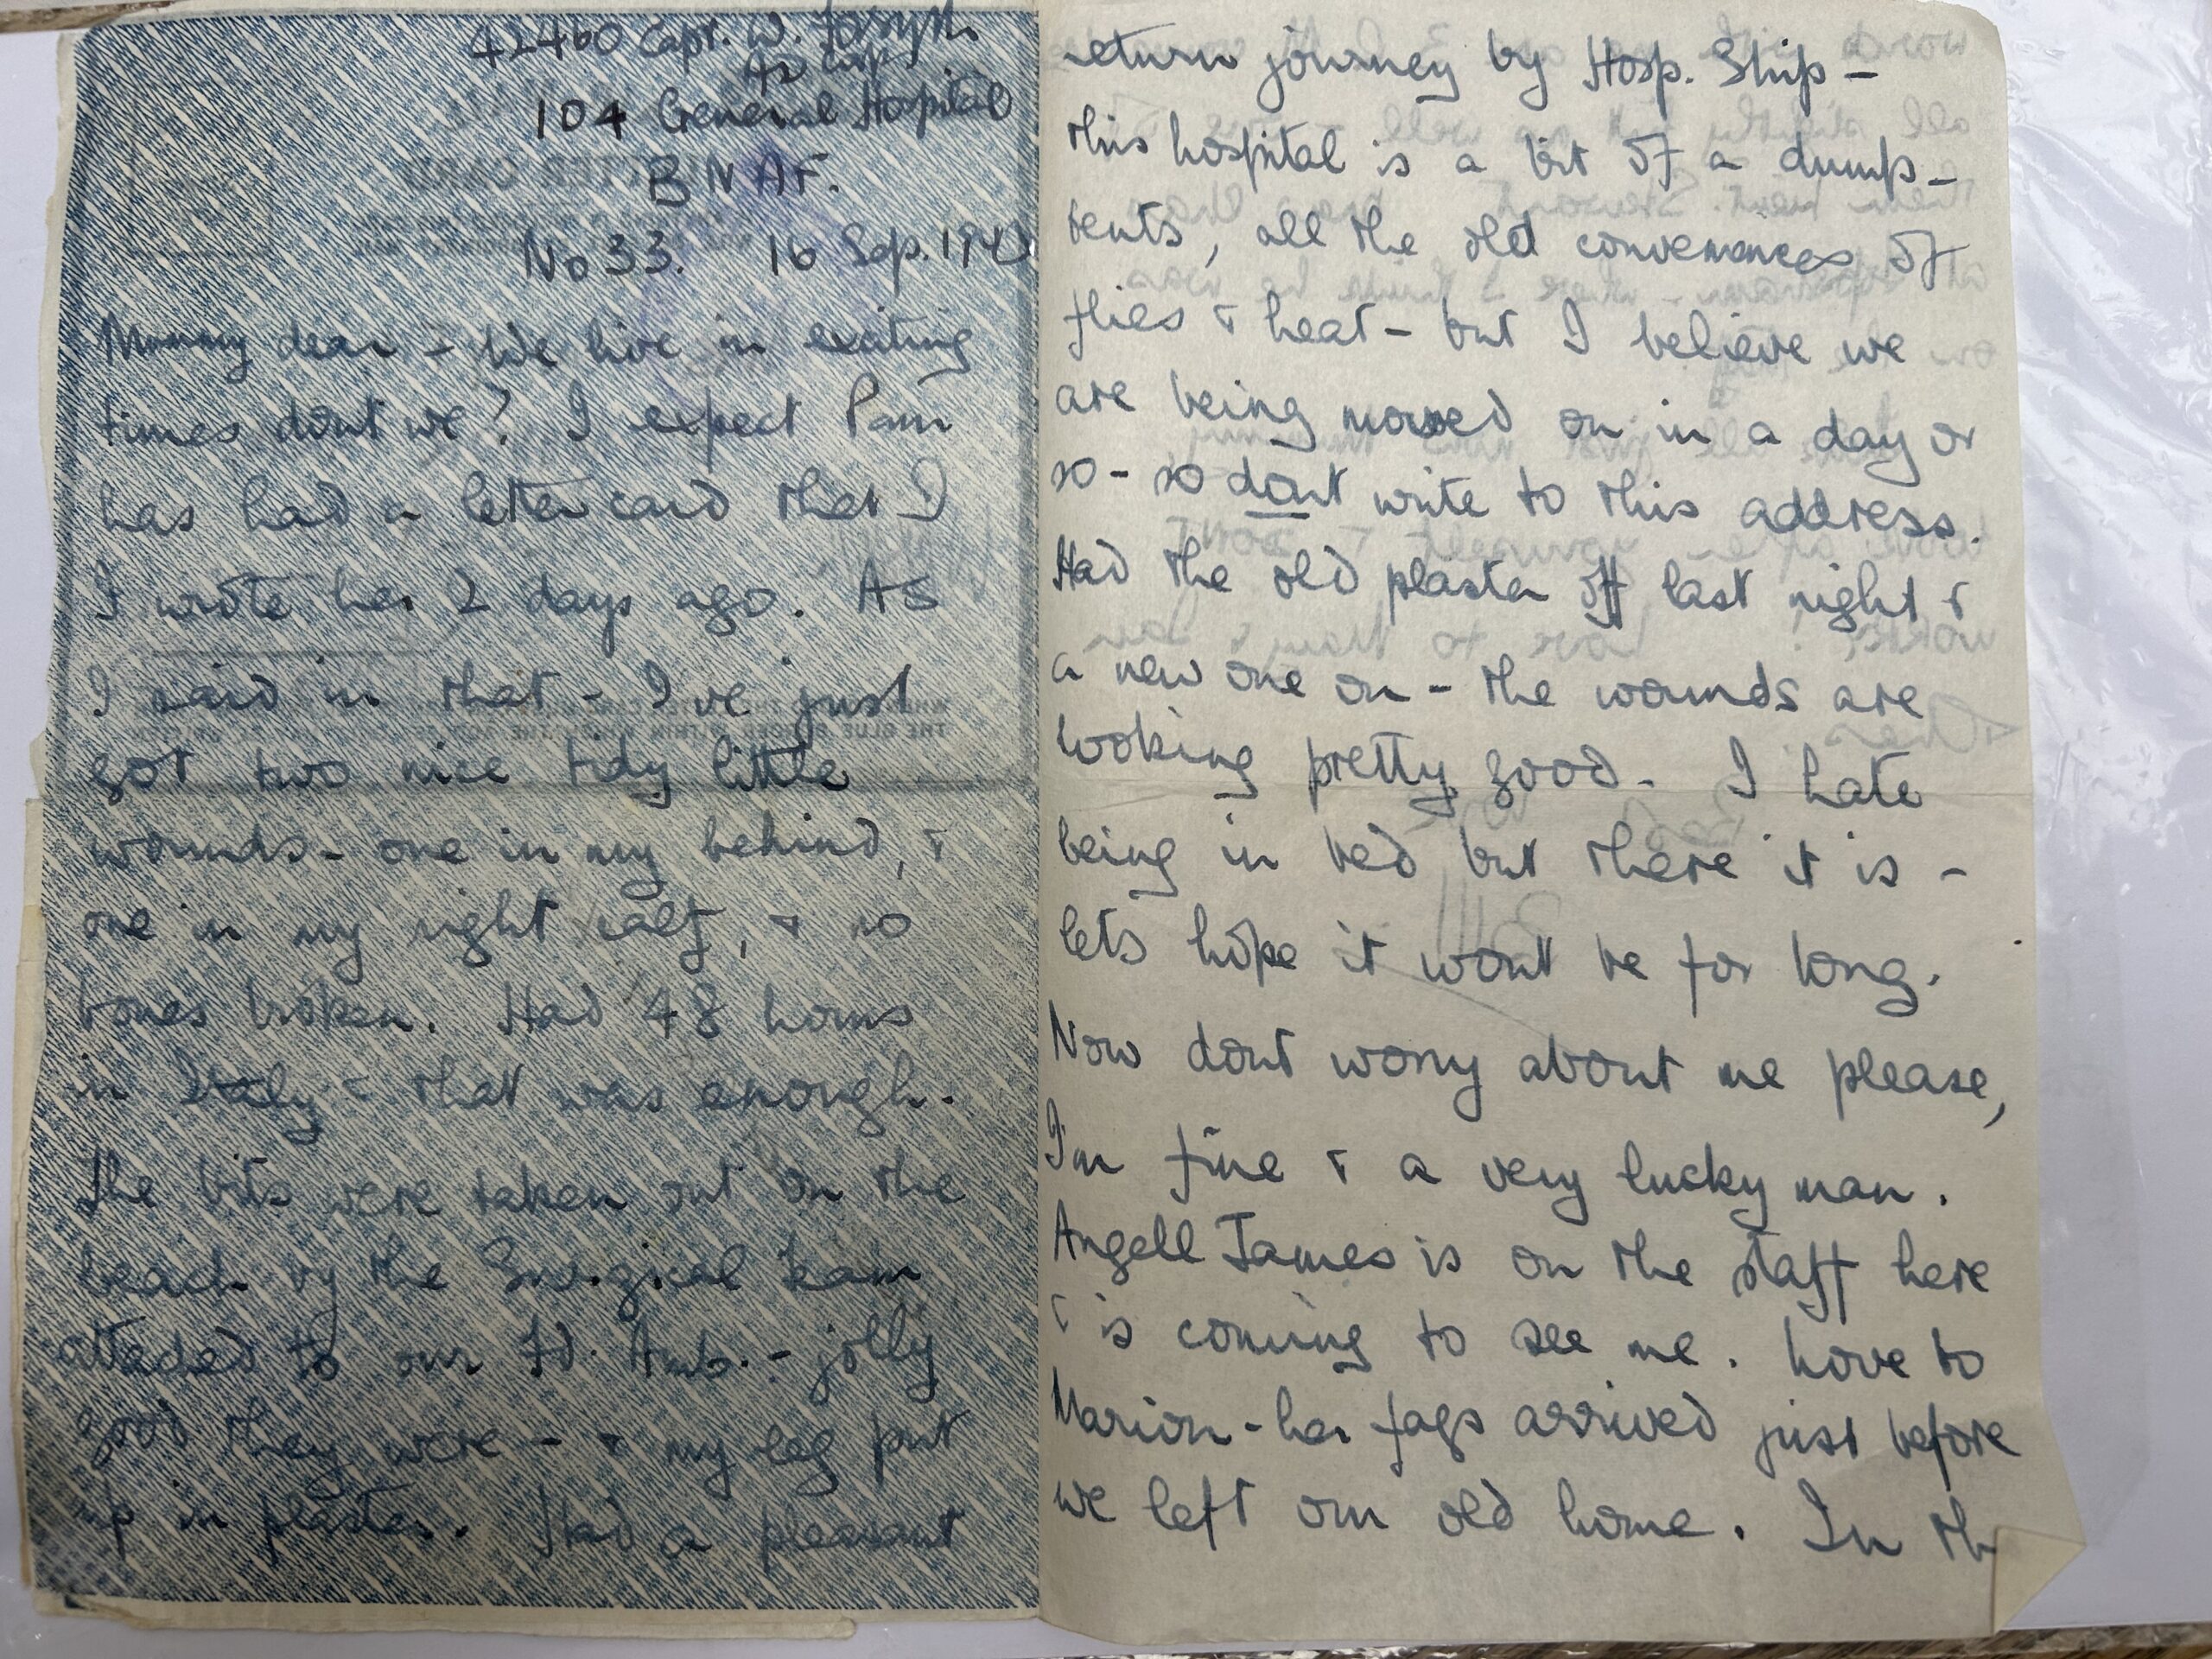 42460 Capt. W. Forsyth
104 General Hospital
B N A F.
No 33. 16 Sep. 194
Mummy dear - We live in exciting
times dont we? I expect Pam
has had a letter card that I
I wrote her 2 days ago. As
I said in that - I've just
got two nice tidy little
wounds - one in my behind, &
one in my right calf, & no
bones broken. Had 48 hours
in Italy - that was enough.
The bits were taken out on the
beach by the Surgical team
attaced to our Fd. Amb. - jolly
good they were - & my leg put
up in plaster. Had a pleasant
return journey by Hosp. Ship -
This hospital is a bit of a dump -
tents, all the old conveniences of
flies & heat - but I believe we
are being moved on in a day or
so - so dont write to this address.
Had the old plaster off last night &
a new one on - the wounds are
looking pretty good. I hate
being in bed but there it is -
lets hope it wont be for long.
Now dont worry about me please,
I'm fine & a very lucky man.
Angell James is on the staff here
& is coming to see me. Love to
Marion - her fags arrived just before
we left our old home. In th